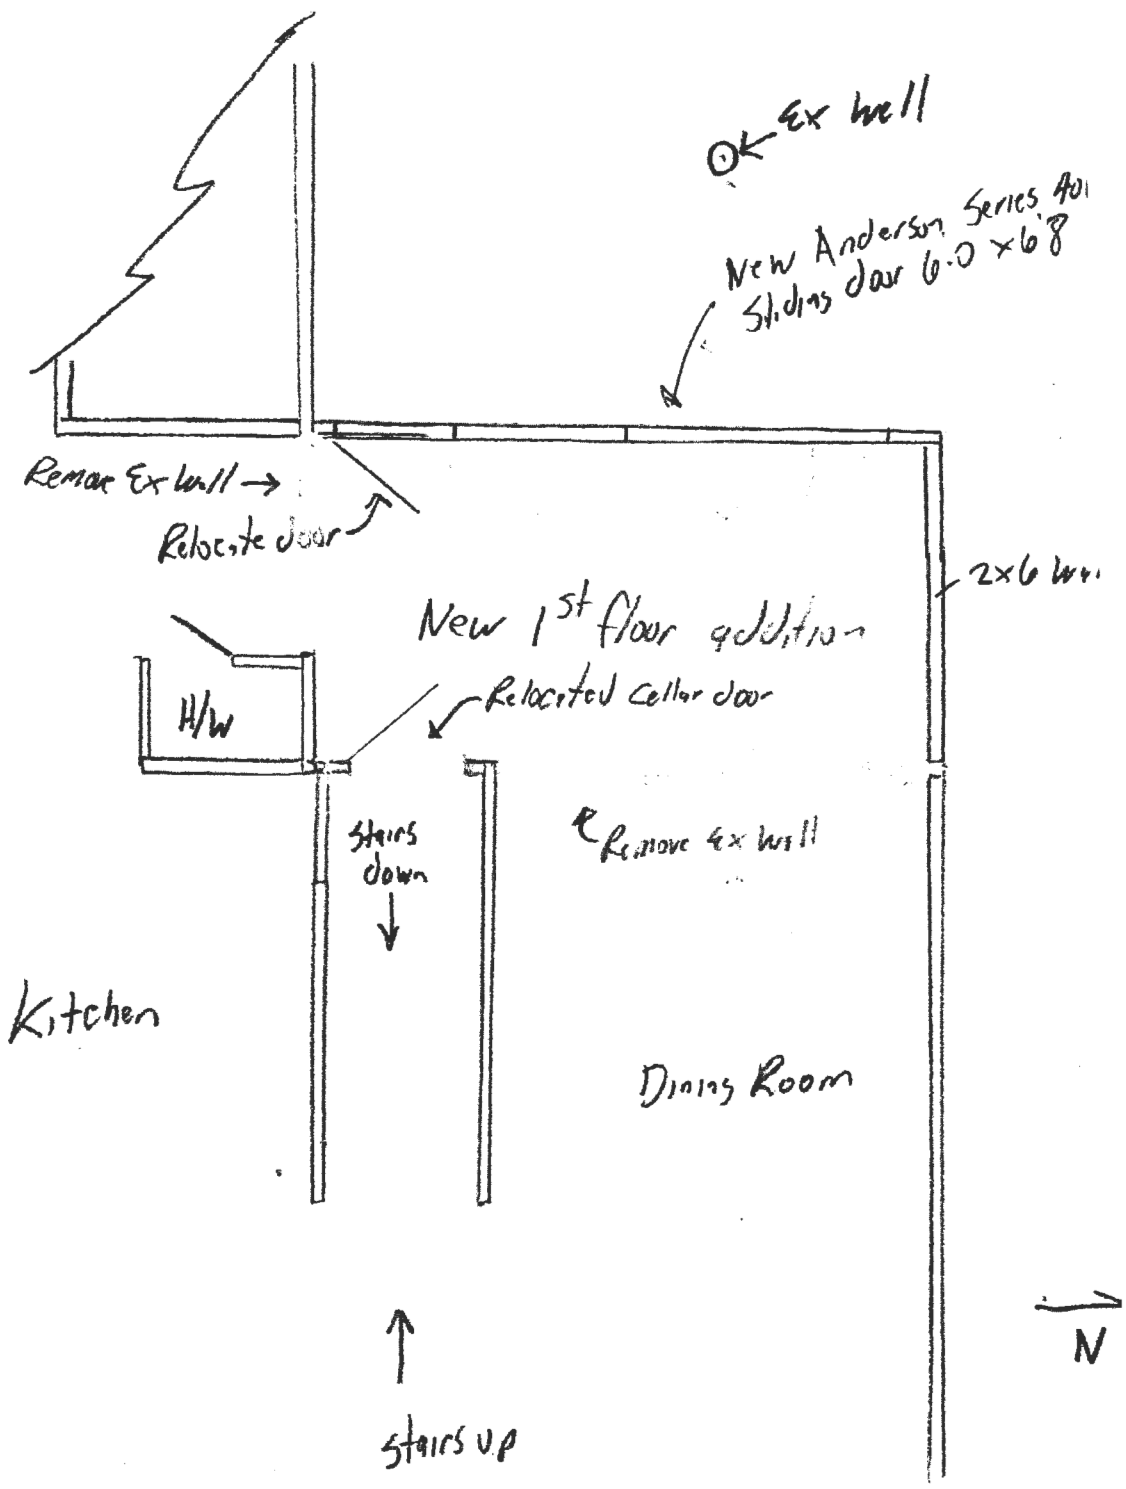 Ex well
New Anderson Series 401
Sliding door 6.0 x 6'8
Remove Ex Wall →
Relocate door
2x6 Wal
New 1st floor addition
Relocated Cellar door
H/W
Stairs
down
Remove Ex Wall
Kitchen
Dining Room
N
Stairs up